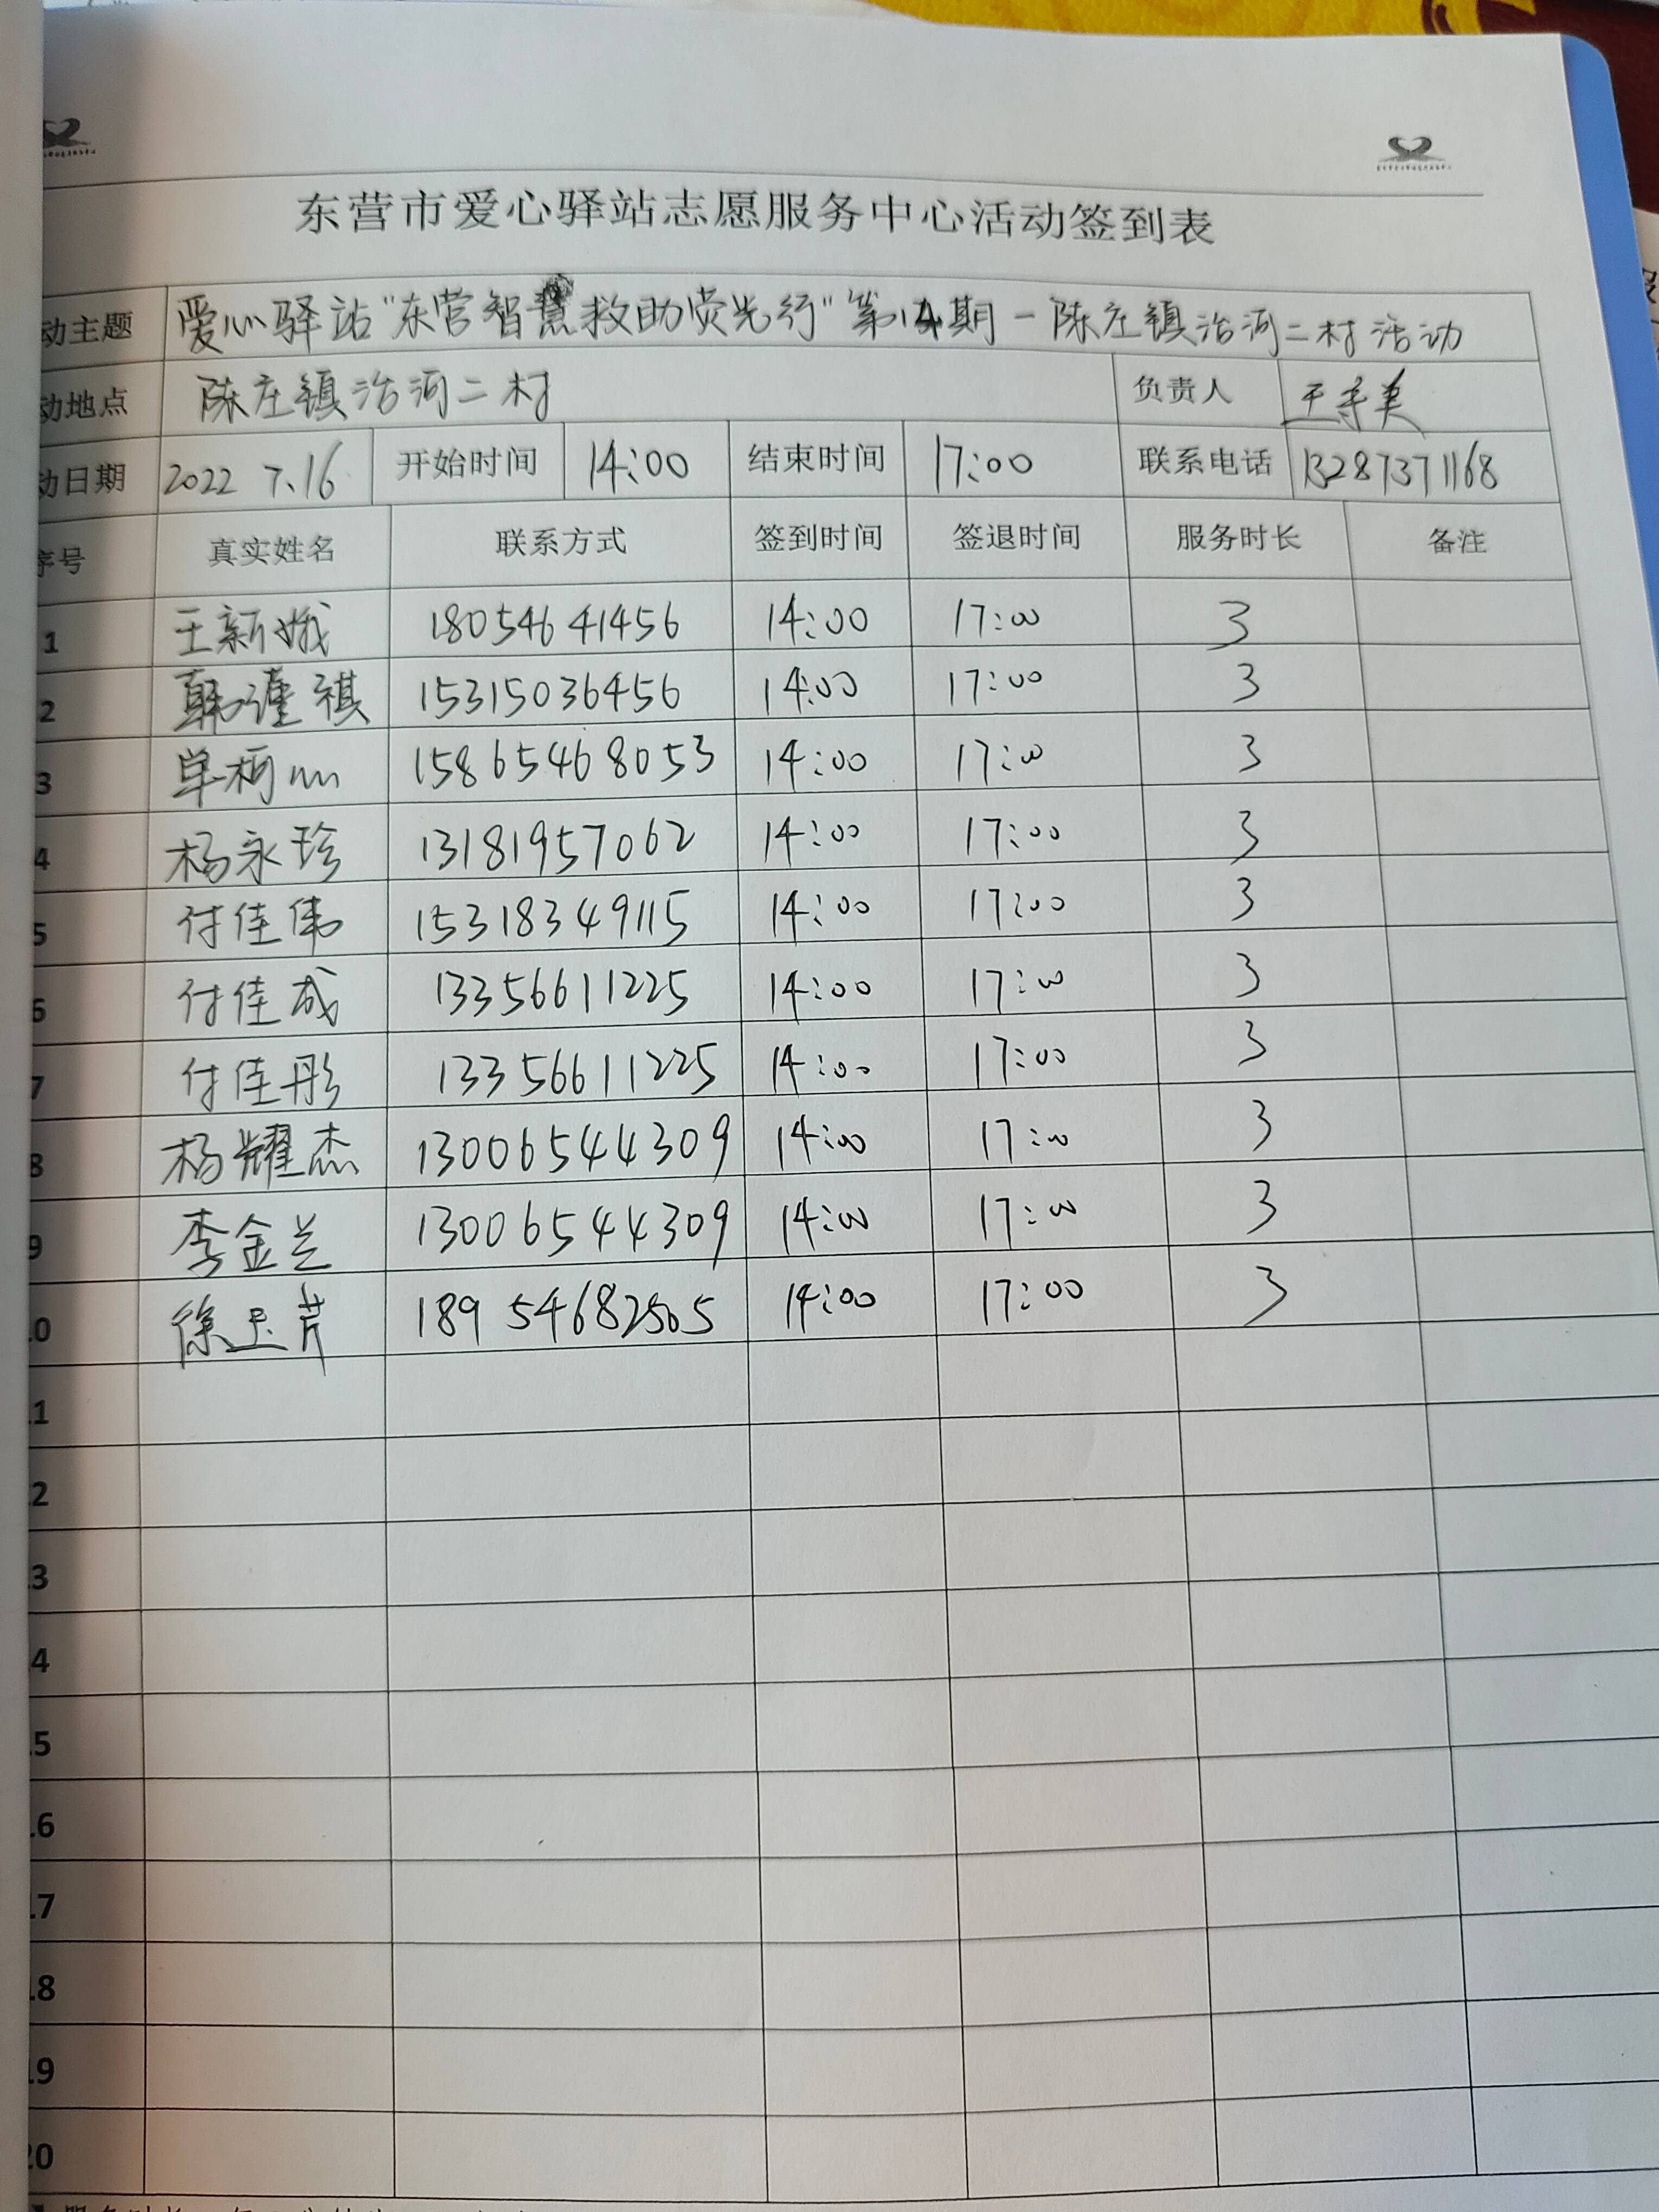 东营市爱心驿站志愿服务中心活动签到表
动主题 爱心驿站"东营智慧救助荧光行"第14期-陈庄镇治河二村活动
动地点 陈庄镇治河二村 负责人
动日期 2022 7.16 开始时间 14:00 结束时间 17:00 联系电话 13287371168
序号 真实姓名 联系方式 签到时间 签退时间 服务时长 备注
1 王新娥 18054641456 14:00 17:00 3
2 韩瑾祺 15315036456 14:00 17:00 3
3 单柯 15865468053 14:00 17:00 3
4 杨永珍 13181957062 14:00 17:00 3
5 付佳伟 15318349115 14:00 17:00 3
6 付佳成 13356611225 14:00 17:00 3
7 付佳彤 13356611225 14:00 17:00 3
8 杨耀杰 13006544309 14:00 17:00 3
9 李金兰 13006544309 14:00 17:00 3
10 徐玉芹 14:00 17:00 3
11
12
13
14
15
16
17
18
19
20